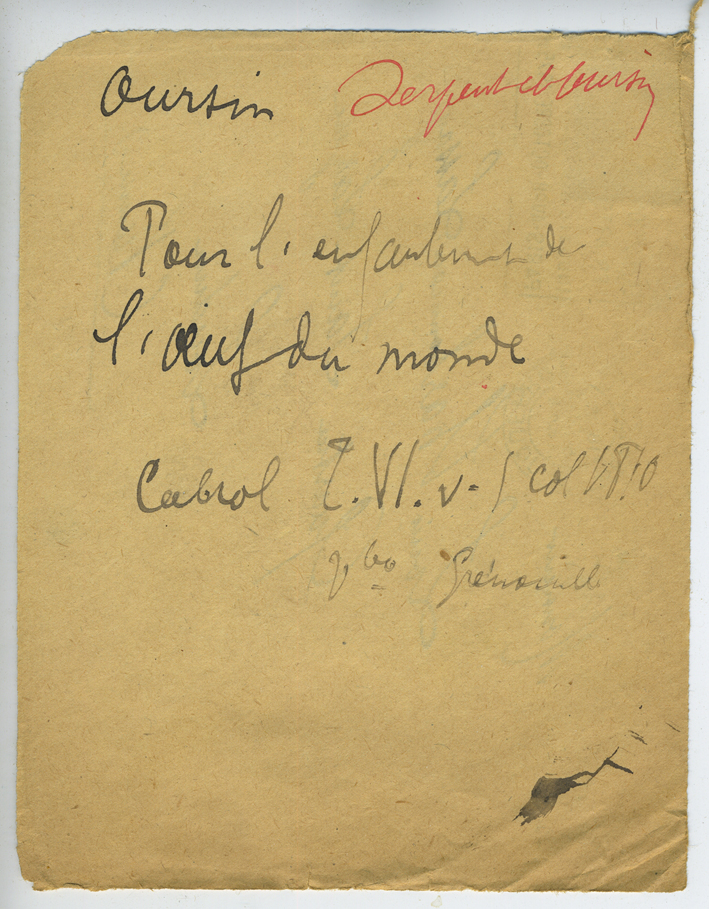 Oursin Serpent et Oursin
Pour l'enfantement de
l'œuf du monde
Cabrol T. VI. v. 1 col
vbo Grenouille